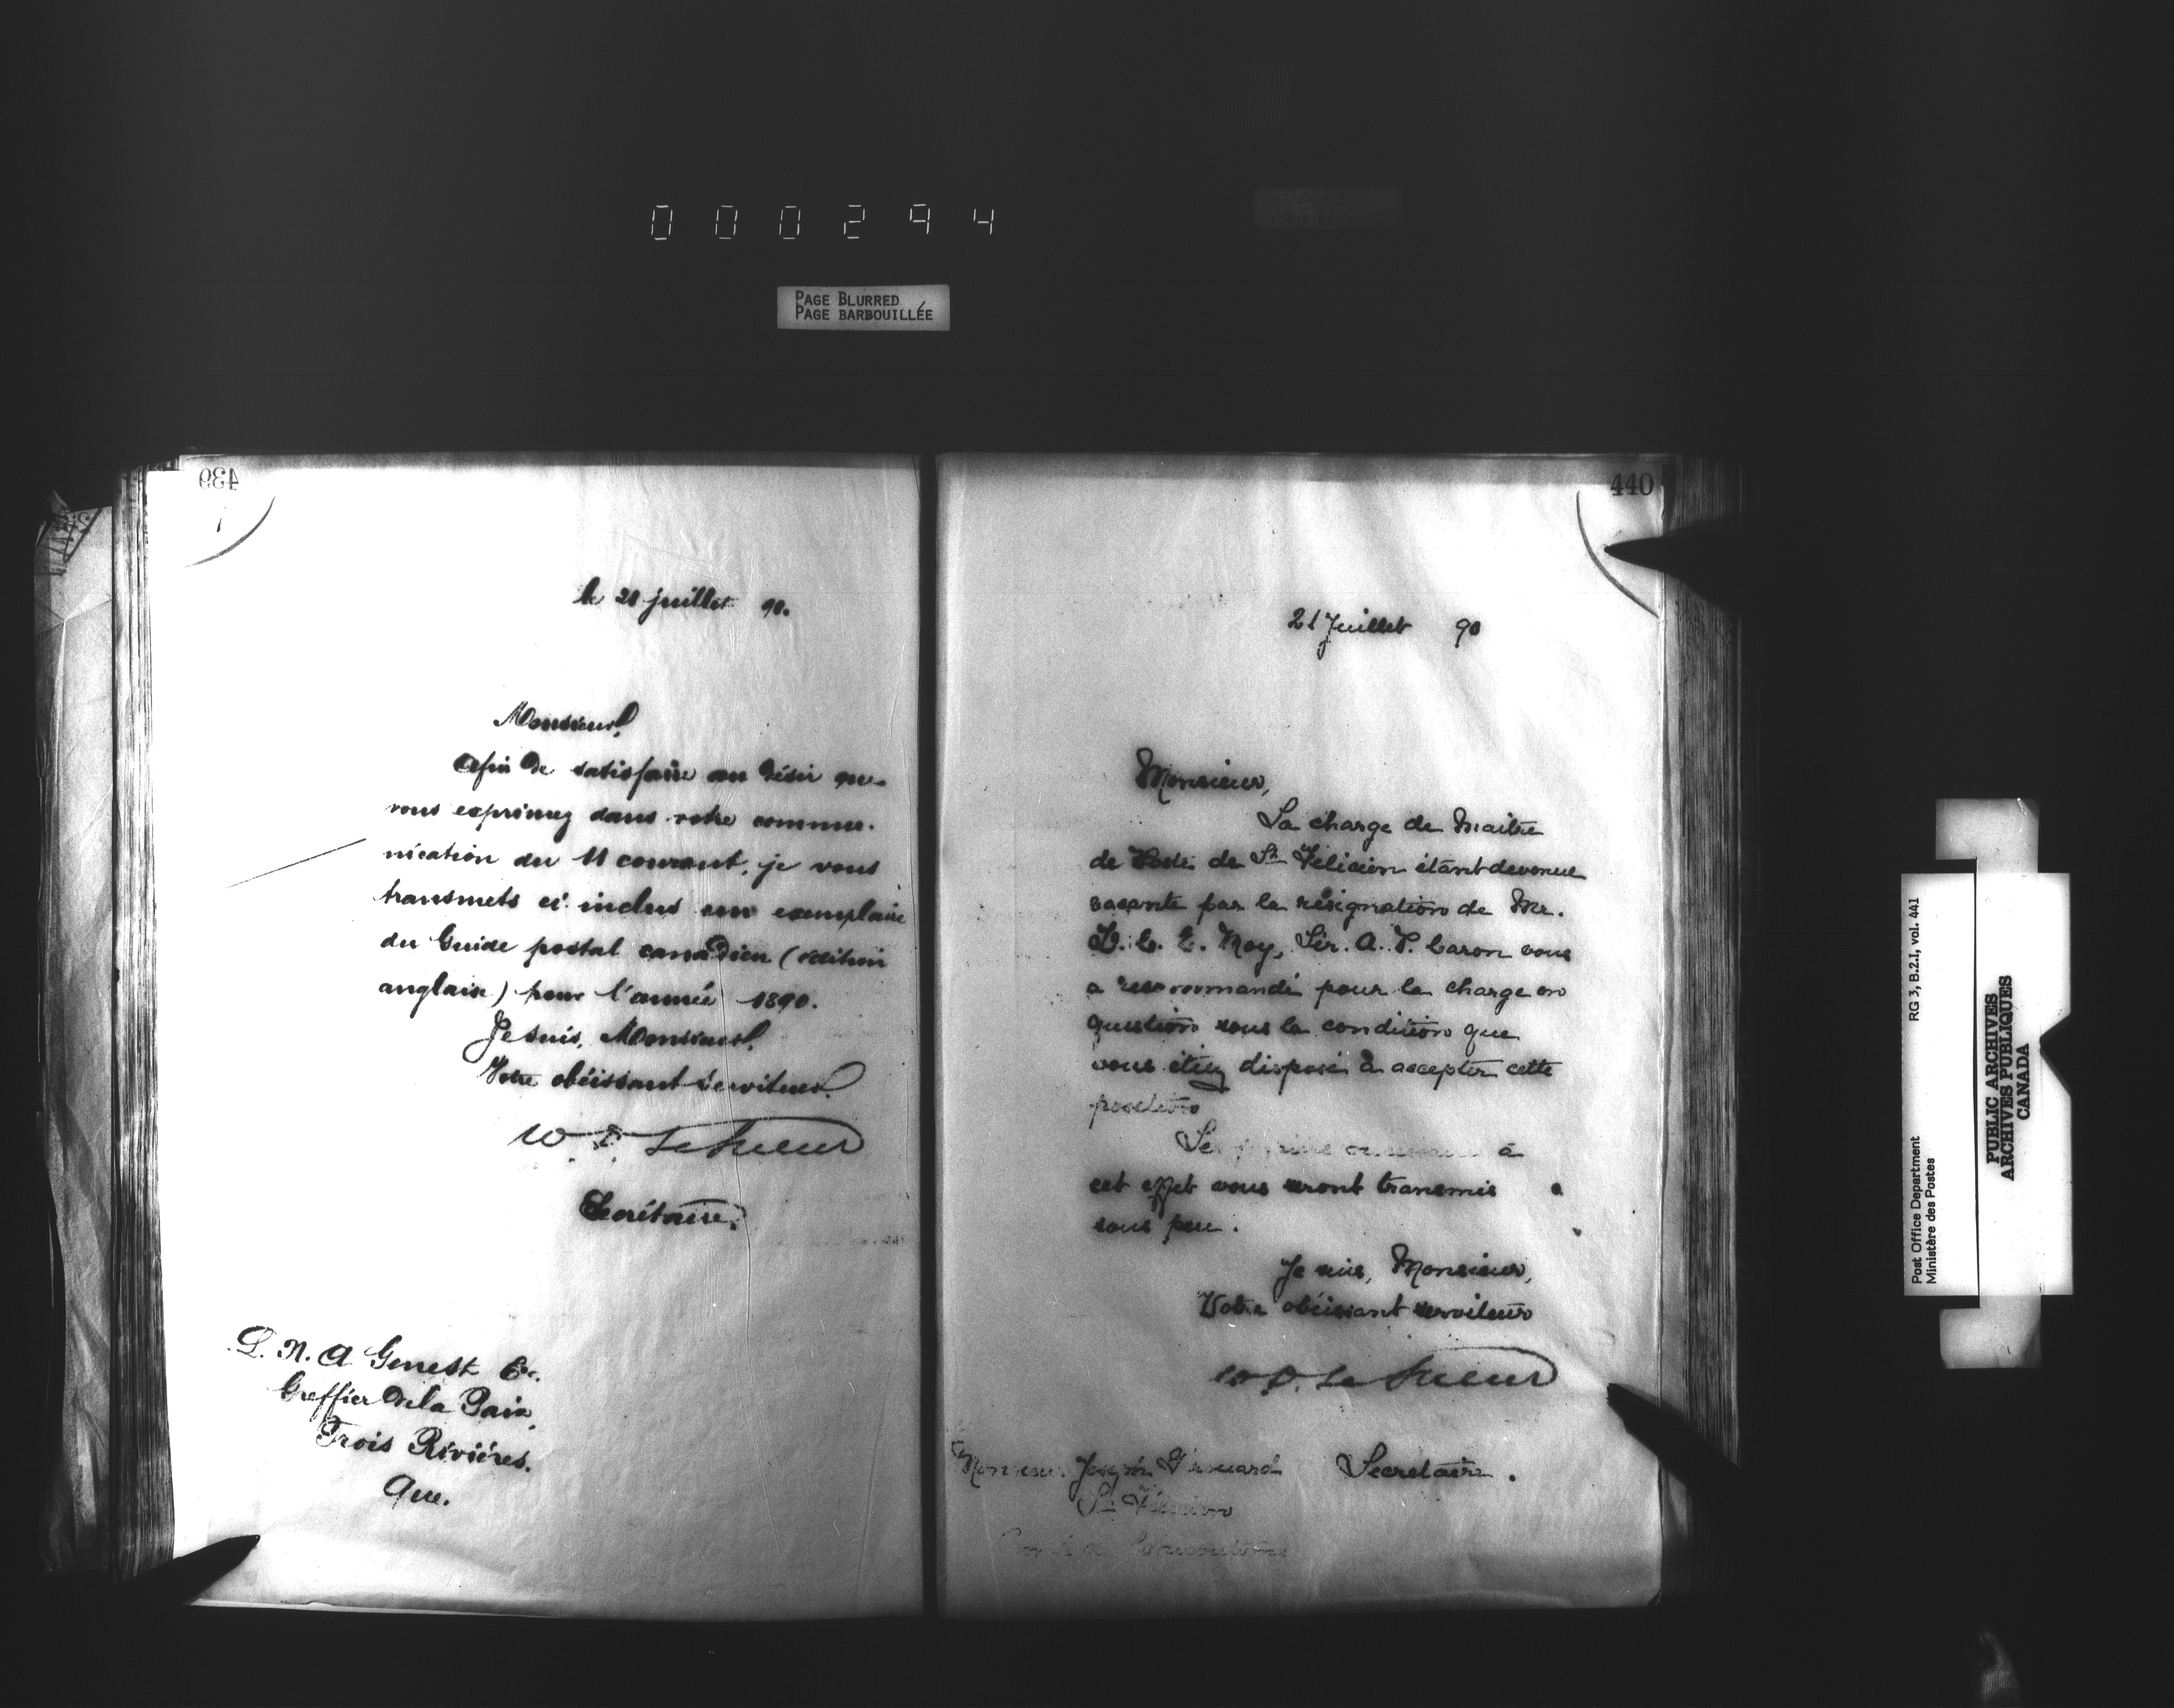 000294
PAGE BLURRED
PAGE BARBOUILLÉE
439
le 21 juillet 90.
Monsieur,
Afin de satisfaire au désir que
vous exprimez dans votre commu-
nication du 11 courant, je vous
transmets ci-inclus un exemplaire
du Guide postal canadien (édition
anglaise) pour l'année 1890.
Je suis, Monsieur,
Votre obéissant serviteur
W. D. LeSueur
Secrétaire.
L. N. A Genest Ec.
Greffier de la Paix,
Trois Rivières.
Que.
440
21 Juillet 90
Monsieur,
La charge de Maître
de Poste de St Félicien étant devenue
vacante par la résignation de Mr.
E. Roy, Sir. A. P. Caron vous
a recommandé pour la charge en
question sous la condition que
vous étiez disposé à accepter cette
position
Les à
cet effet vous seront transmis
sous peu.
Je suis, Monsieur,
Votre obéissant serviteur
W. D. LeSueur
Secretaire.
Monsieur Joseph
St Félicien
Comté de Chicoutimi
RG 3, B.2.I, vol. 441
Post Office Department
Ministère des Postes
PUBLIC ARCHIVES
ARCHIVES PUBLIQUES
CANADA